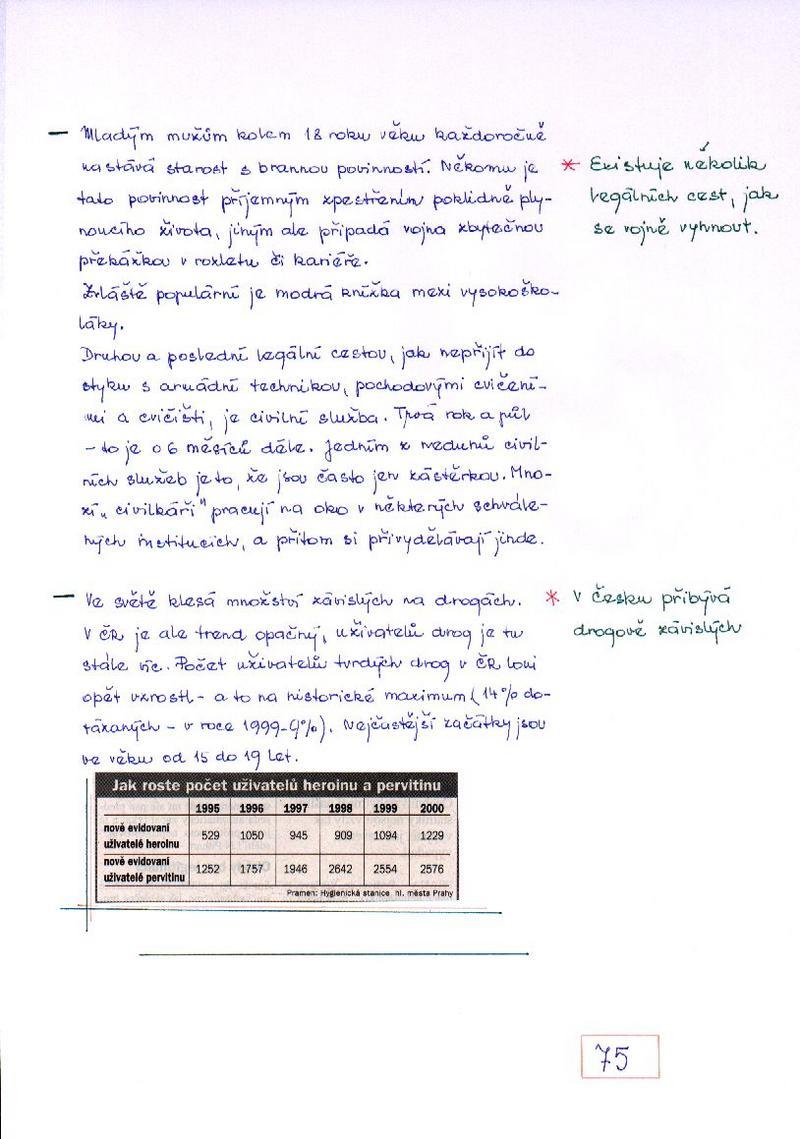 – Mladým mužům kolem 18 roku věku každoročně
nastává starost s brannou povinností. Někomu je
tato povinnost příjemným zpestřením poklidně ply-
noucího života, jiným ale připadá vojna zbytečnou
překážkou v rozletu či kariéře.
Zvláště populární je modrá knížka mezi vysokoško-
láky.
Druhou a poslední legální cestou, jak nepřijít do
styku s armádní technikou, pochodovými cvičení-
mi a cvičišti, je civilní služba. Trvá rok a půl
– to je o 6 měsíců déle. Jedním z neduhů civil-
ních služeb je to, že jsou často jen zástěrkou. Mno-
zí „civilkáři" pracují na oko v některých schvále-
ných institucích, a přitom si přivydělávají jinde.
* Existuje několik
legálních cest, jak
se vojně vyhnout.
– Ve světě klesá množství závislých na drogách.
V ČR je ale trend opačný, uživatelů drog je tu
stále víc. Počet uživatelů tvrdých drog v ČR loni
opět vzrostl - a to na historické maximum (14% do-
tázaných - v roce 1999-9%). Nejčastější začátky jsou
ve věku od 15 do 19 let.
* V Česku přibývá
drogově závislých
Jak roste počet uživatelů heroinu a pervitinu
1995 1996 1997 1998 1999 2000
nově evidovaní
uživatelé heroinu 529 1050 945 909 1094 1229
nově evidovaní
uživatelé pervitinu 1252 1757 1946 2642 2554 2576
Pramen: Hygienická stanice hl. města Prahy
75